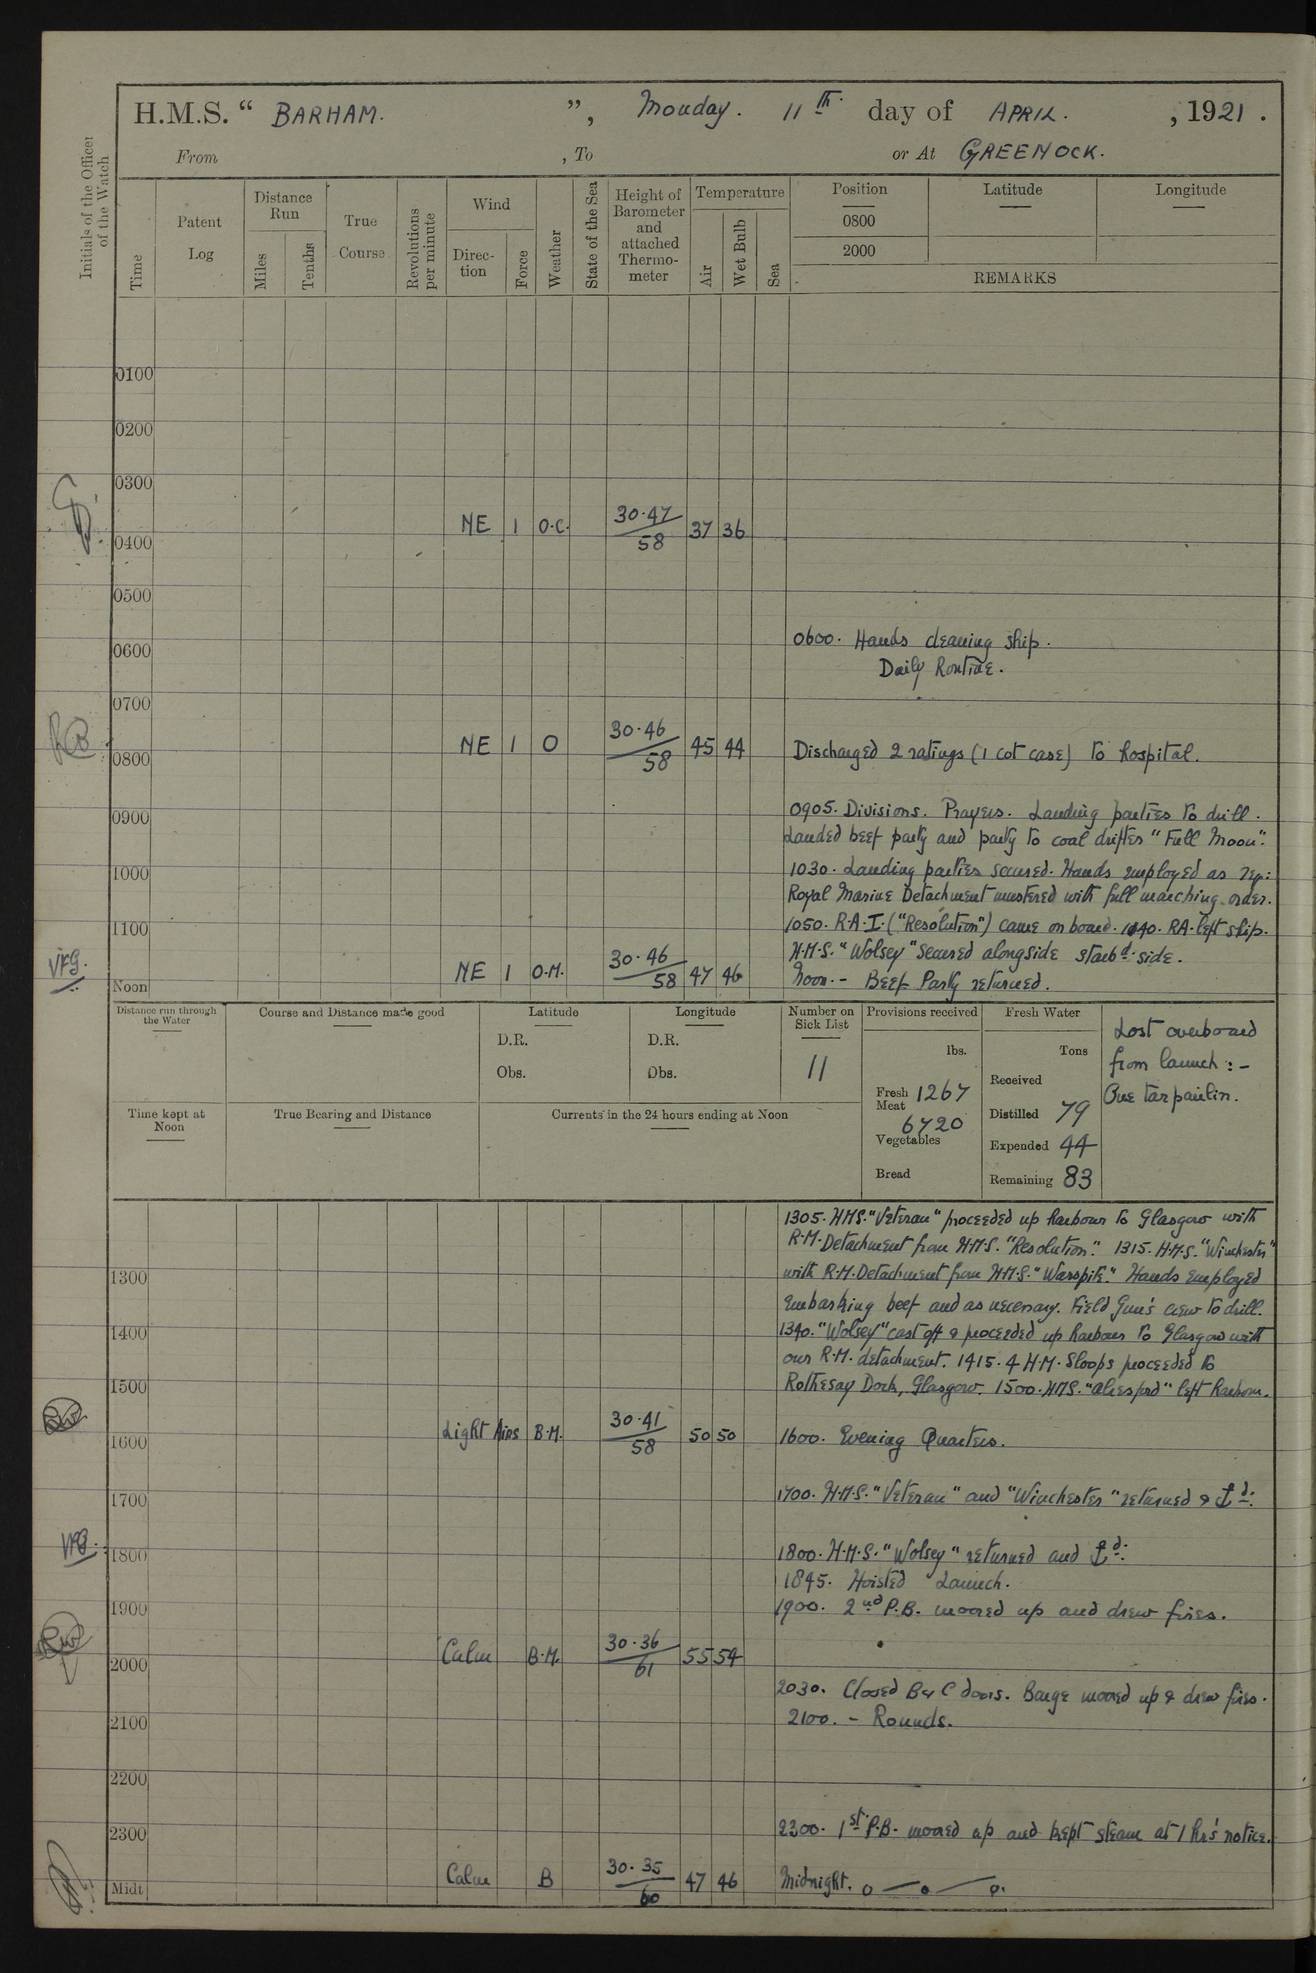 H.M.S. “ BARHAM. ”, Monday. 11th. day of APRIL. , 1921 .
From , To or At GREENOCK.
Initials of the Officer of the Watch
Time
Patent Log
Distance Run
Miles
Tenths
True Course
Revolutions per minute
Wind
Direc- tion
Force
Weather
State of the Sea
Height of Barometer and attached Thermo- meter
Temperature
Air
Wet Bulb
Sea
Position
0800
2000
Latitude
Longitude
REMARKS
0100
0200
0300
0400 NE 1 O.C. 30.47 58 37 36
0500
0600
0600. Hands cleaning ship.
Daily Routine.
0700
0800 NE 1 O 30.46 58 45 44 Discharged 2 ratings (1 cot case) to hospital.
0900
0905. Divisions. Prayers. Landing parties to drill.
Landed beef party and party to coal drifter "Full Moon".
1000
1030. Landing parties secured. Hands employed as req:
Royal Marine Detachment mustered with full marching order.
1100
1050. R.A.I. ("Resolution") came on board. 1140. RA. left ship.
VFG.
H.M.S. "Wolsey" secured alongside starbd. side.
Noon NE 1 O.M. 30.46 58 47 46 Noon.- Beef Party returned.
Distance run through the Water
Course and Distance made good
Latitude
D.R.
Obs.
Longitude
D.R.
Obs.
Number on Sick List
11
Provisions received
lbs.
Fresh Meat 1267
6720
Vegetables
Bread
Fresh Water
Tons
Received
Distilled 79
Expended 44
Remaining 83
Lost overboard
from launch :-
One tarpaulin.
Time kept at Noon
True Bearing and Distance
Currents in the 24 hours ending at Noon
1305. HMS. "Veteran" proceeded up harbour to Glasgow with
R.M. Detachment from H.M.S. "Resolution". 1315. H.M.S. "Winchester"
1300
with R.M. Detachment from H.M.S. "Warspite." Hands employed
embarking beef and as necessary. Field Gun's crew to drill.
1400
1340. "Wolsey" cast off & proceeded up harbour to Glasgow with
our R.M. detachment. 1415. 4 H.M. Sloops proceeded to
1500
Rothesay Dock, Glasgow. 1500. HMS. "Alresford" left harbour.
1600 Light Airs B.M. 30.41 58 50 50 1600. Evening Quarters.
1700
1700. H.M.S. "Veteran" and "Winchester" returned & ⚓d.
1800
1800. H.M.S. "Wolsey" returned and ⚓d.
1845. Hoisted Launch.
1900
1900. 2nd P.B. moored up and drew fires.
2000 Calm B.M. 30.36 61 55 54
2030. Closed B & C doors. Barge moored up & drew fires.
2100
2100. - Rounds.
2200
2300
2300. 1st P.B. moored up and kept steam at 1 hrs' notice.
Midt Calm B 30.35 60 47 46 Midnight.